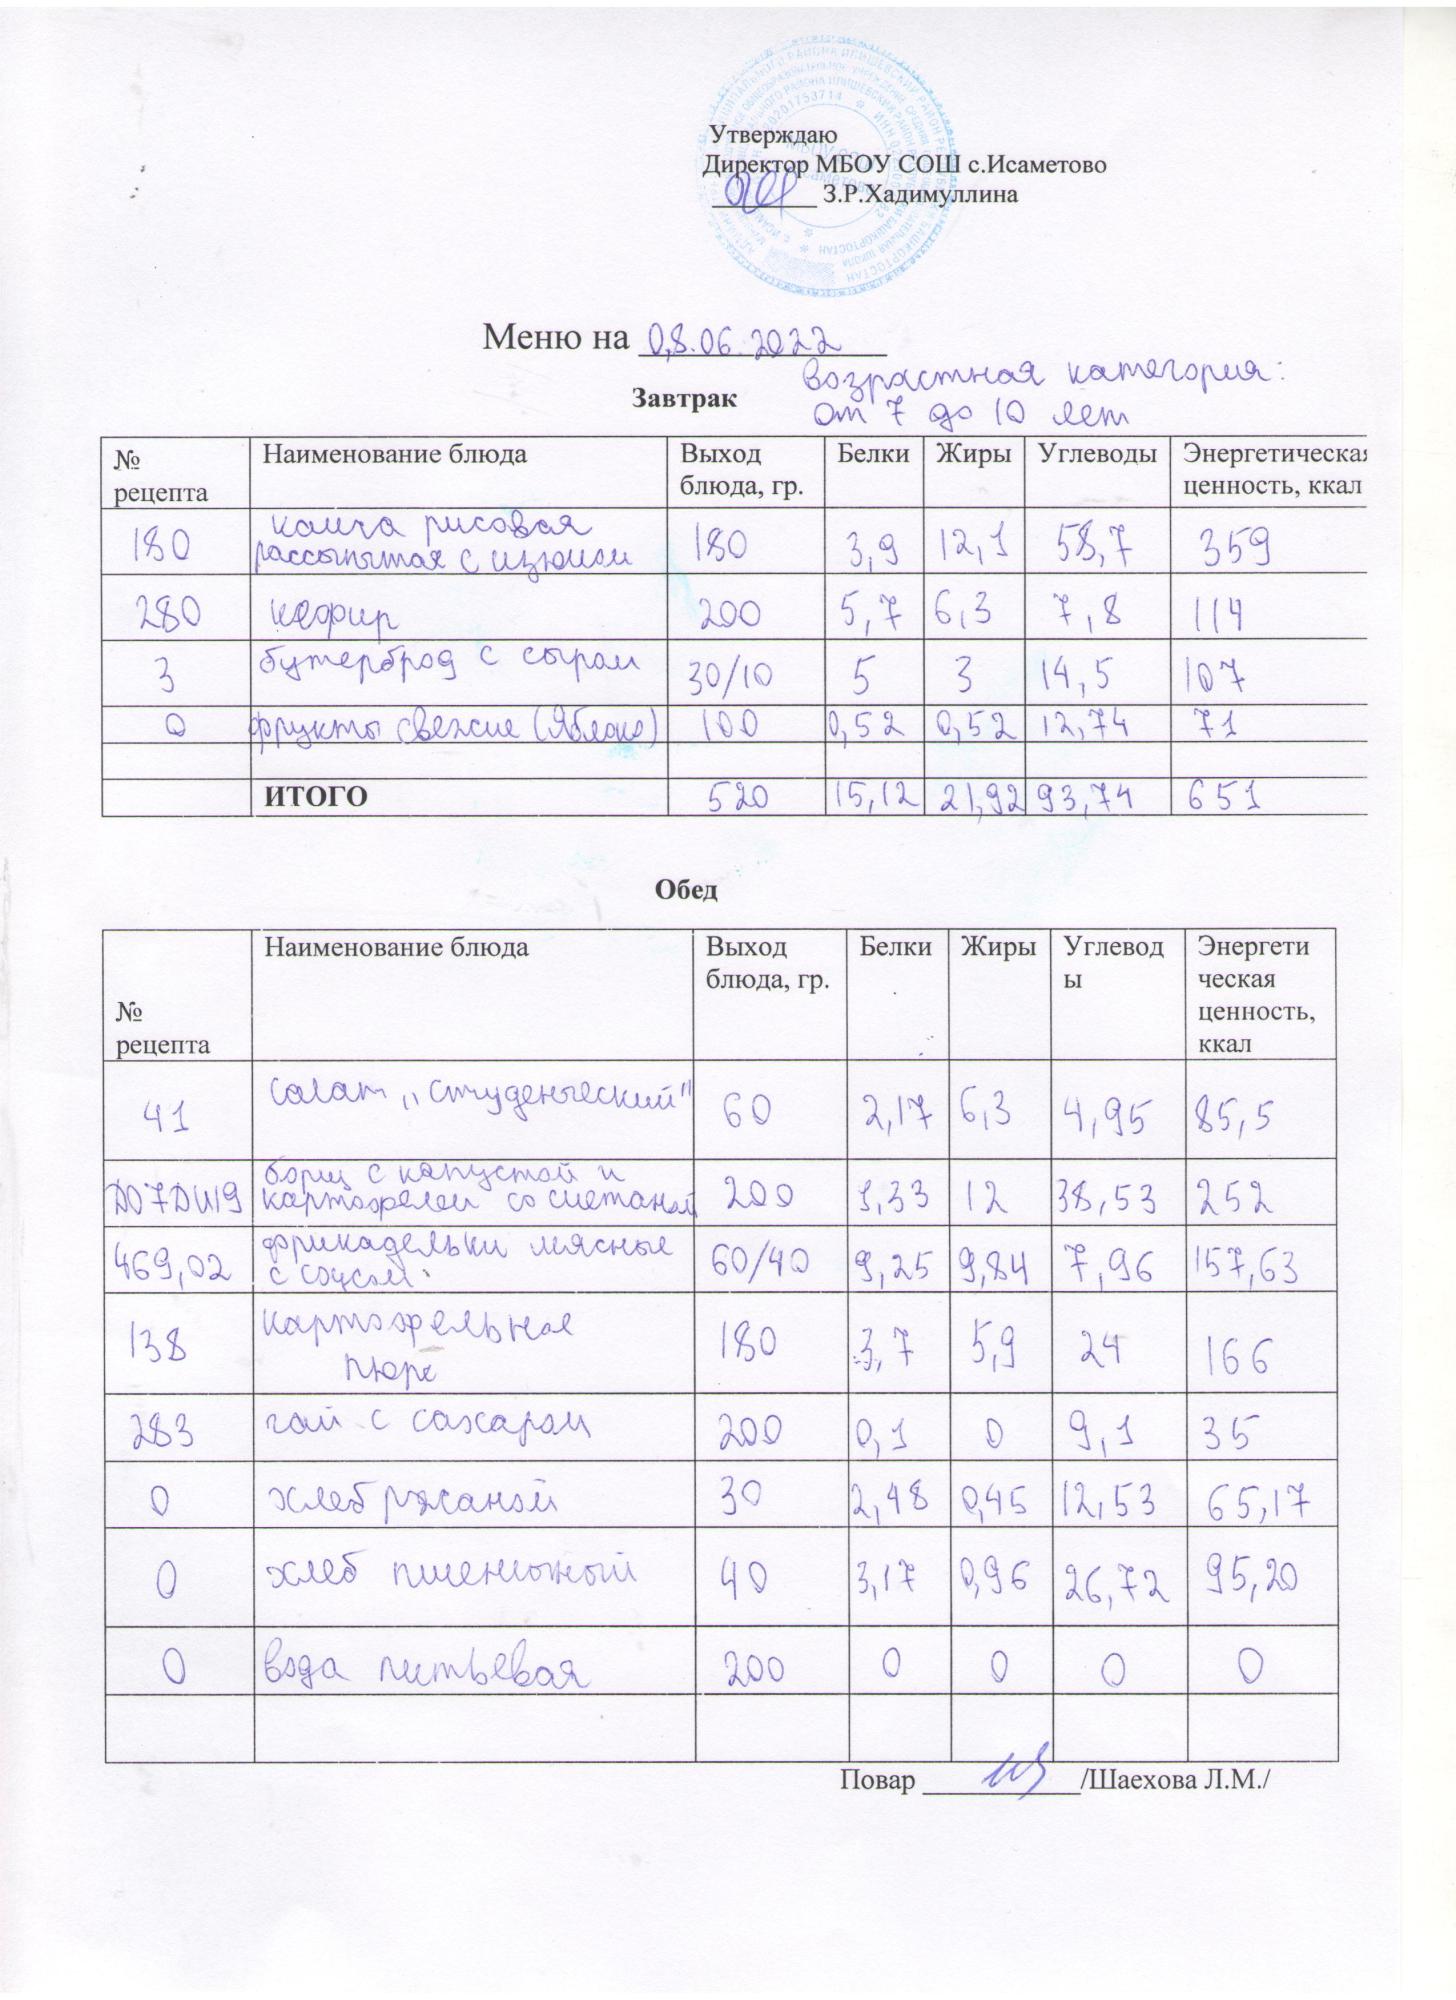 Утверждаю
Директор МБОУ СОШ с.Исаметово
З.Р.Хадимуллина
Меню на 08.06.2022
возрастная категория:
от 7 до 10 лет
Завтрак
№ рецепта Наименование блюда Выход блюда, гр. Белки Жиры Углеводы Энергетическая ценность, ккал
180 каша рисовая рассыпчатая с изюмом 180 3,9 12,1 58,7 359
280 кефир 200 5,7 6,3 7,8 114
3 бутерброд с сыром 30/10 5 3 14,5 107
0 фрукты свежие (Яблоко) 100 0,52 0,52 12,74 71
ИТОГО 520 15,12 21,92 93,74 651
Обед
№ рецепта Наименование блюда Выход блюда, гр. Белки Жиры Углеводы Энергетическая ценность, ккал
41 салат „студенческий" 60 2,17 6,3 4,95 85,5
борщ с капустой и картофелем со сметаной 200 1,33 12 38,53 252
469,02 фрикадельки мясные с соусом 60/40 9,25 9,84 7,96 157,63
138 картофельное пюре 180 3,7 5,9 24 166
283 чай с сахаром 200 0,1 0 9,1 35
0 хлеб ржаной 30 2,48 0,45 12,53 65,17
0 хлеб пшеничный 40 3,17 0,96 26,72 95,20
0 вода питьевая 200 0 0 0 0
Повар /Шаехова Л.М./